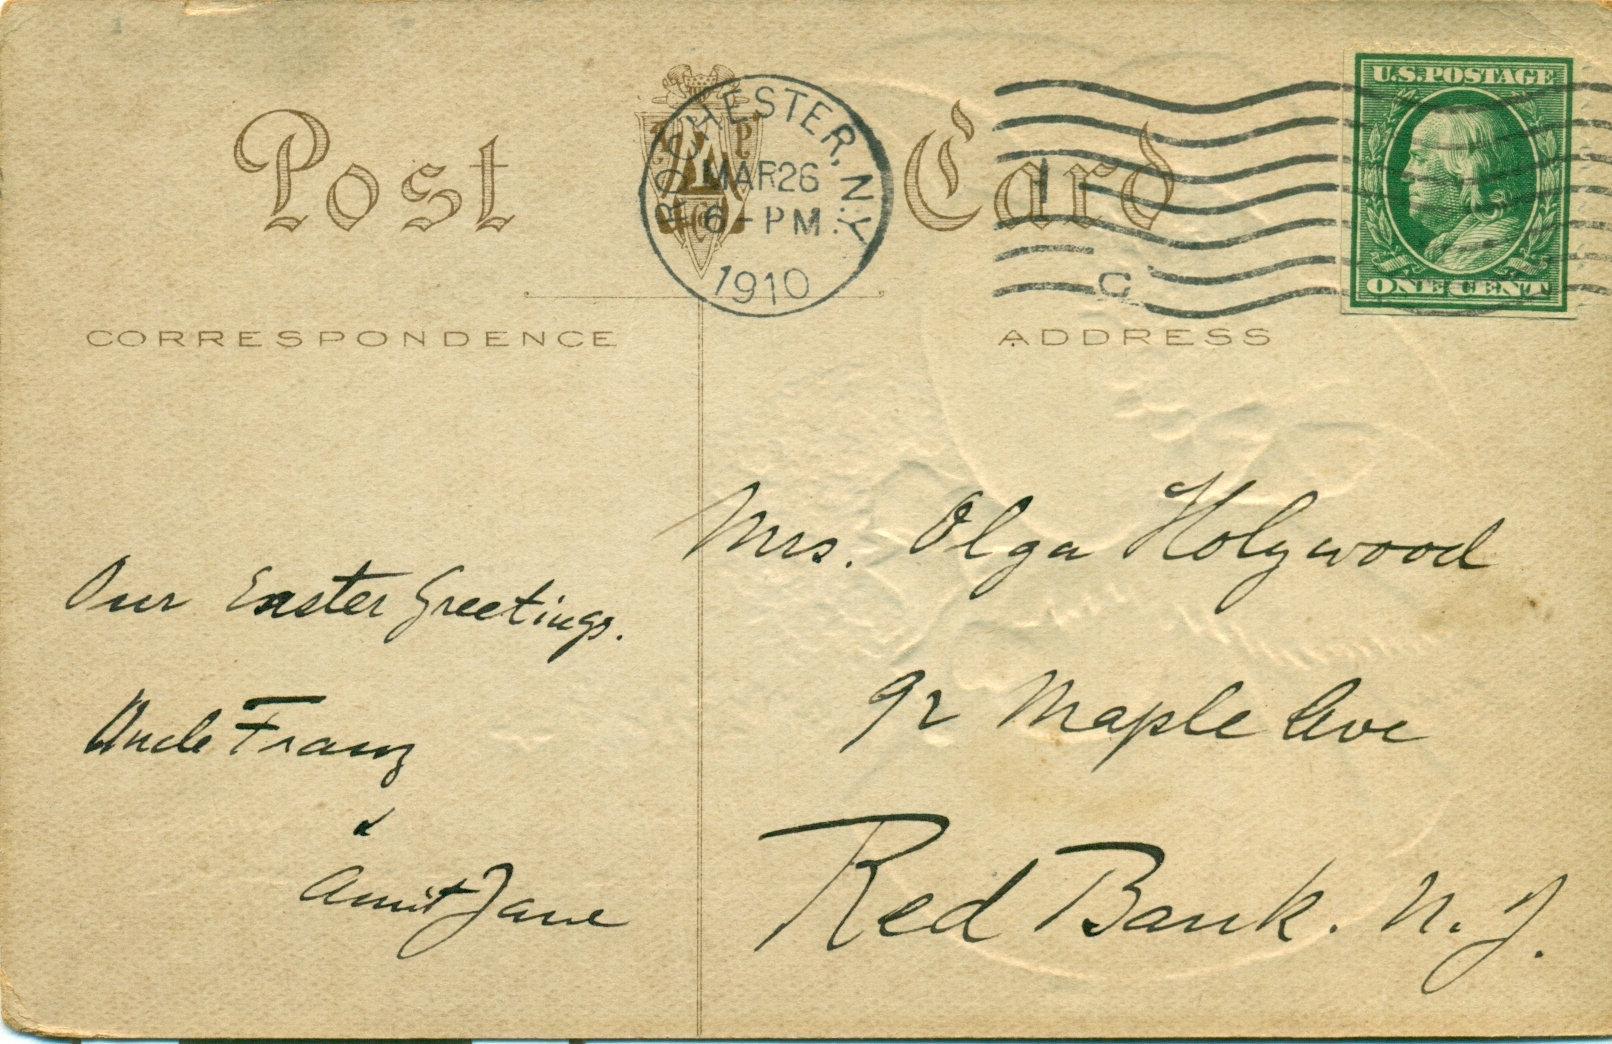 Post Card
ROCHESTER, N.Y.
MAR 26
6 - PM
1910
C
U.S. POSTAGE
ONE CENT
CORRESPONDENCE
ADDRESS
Our Easter Greetings.
Uncle Franz
&
Aunt Jane
Mrs. Olga Holywood
92 Maple Ave
Red Bank. N. J.